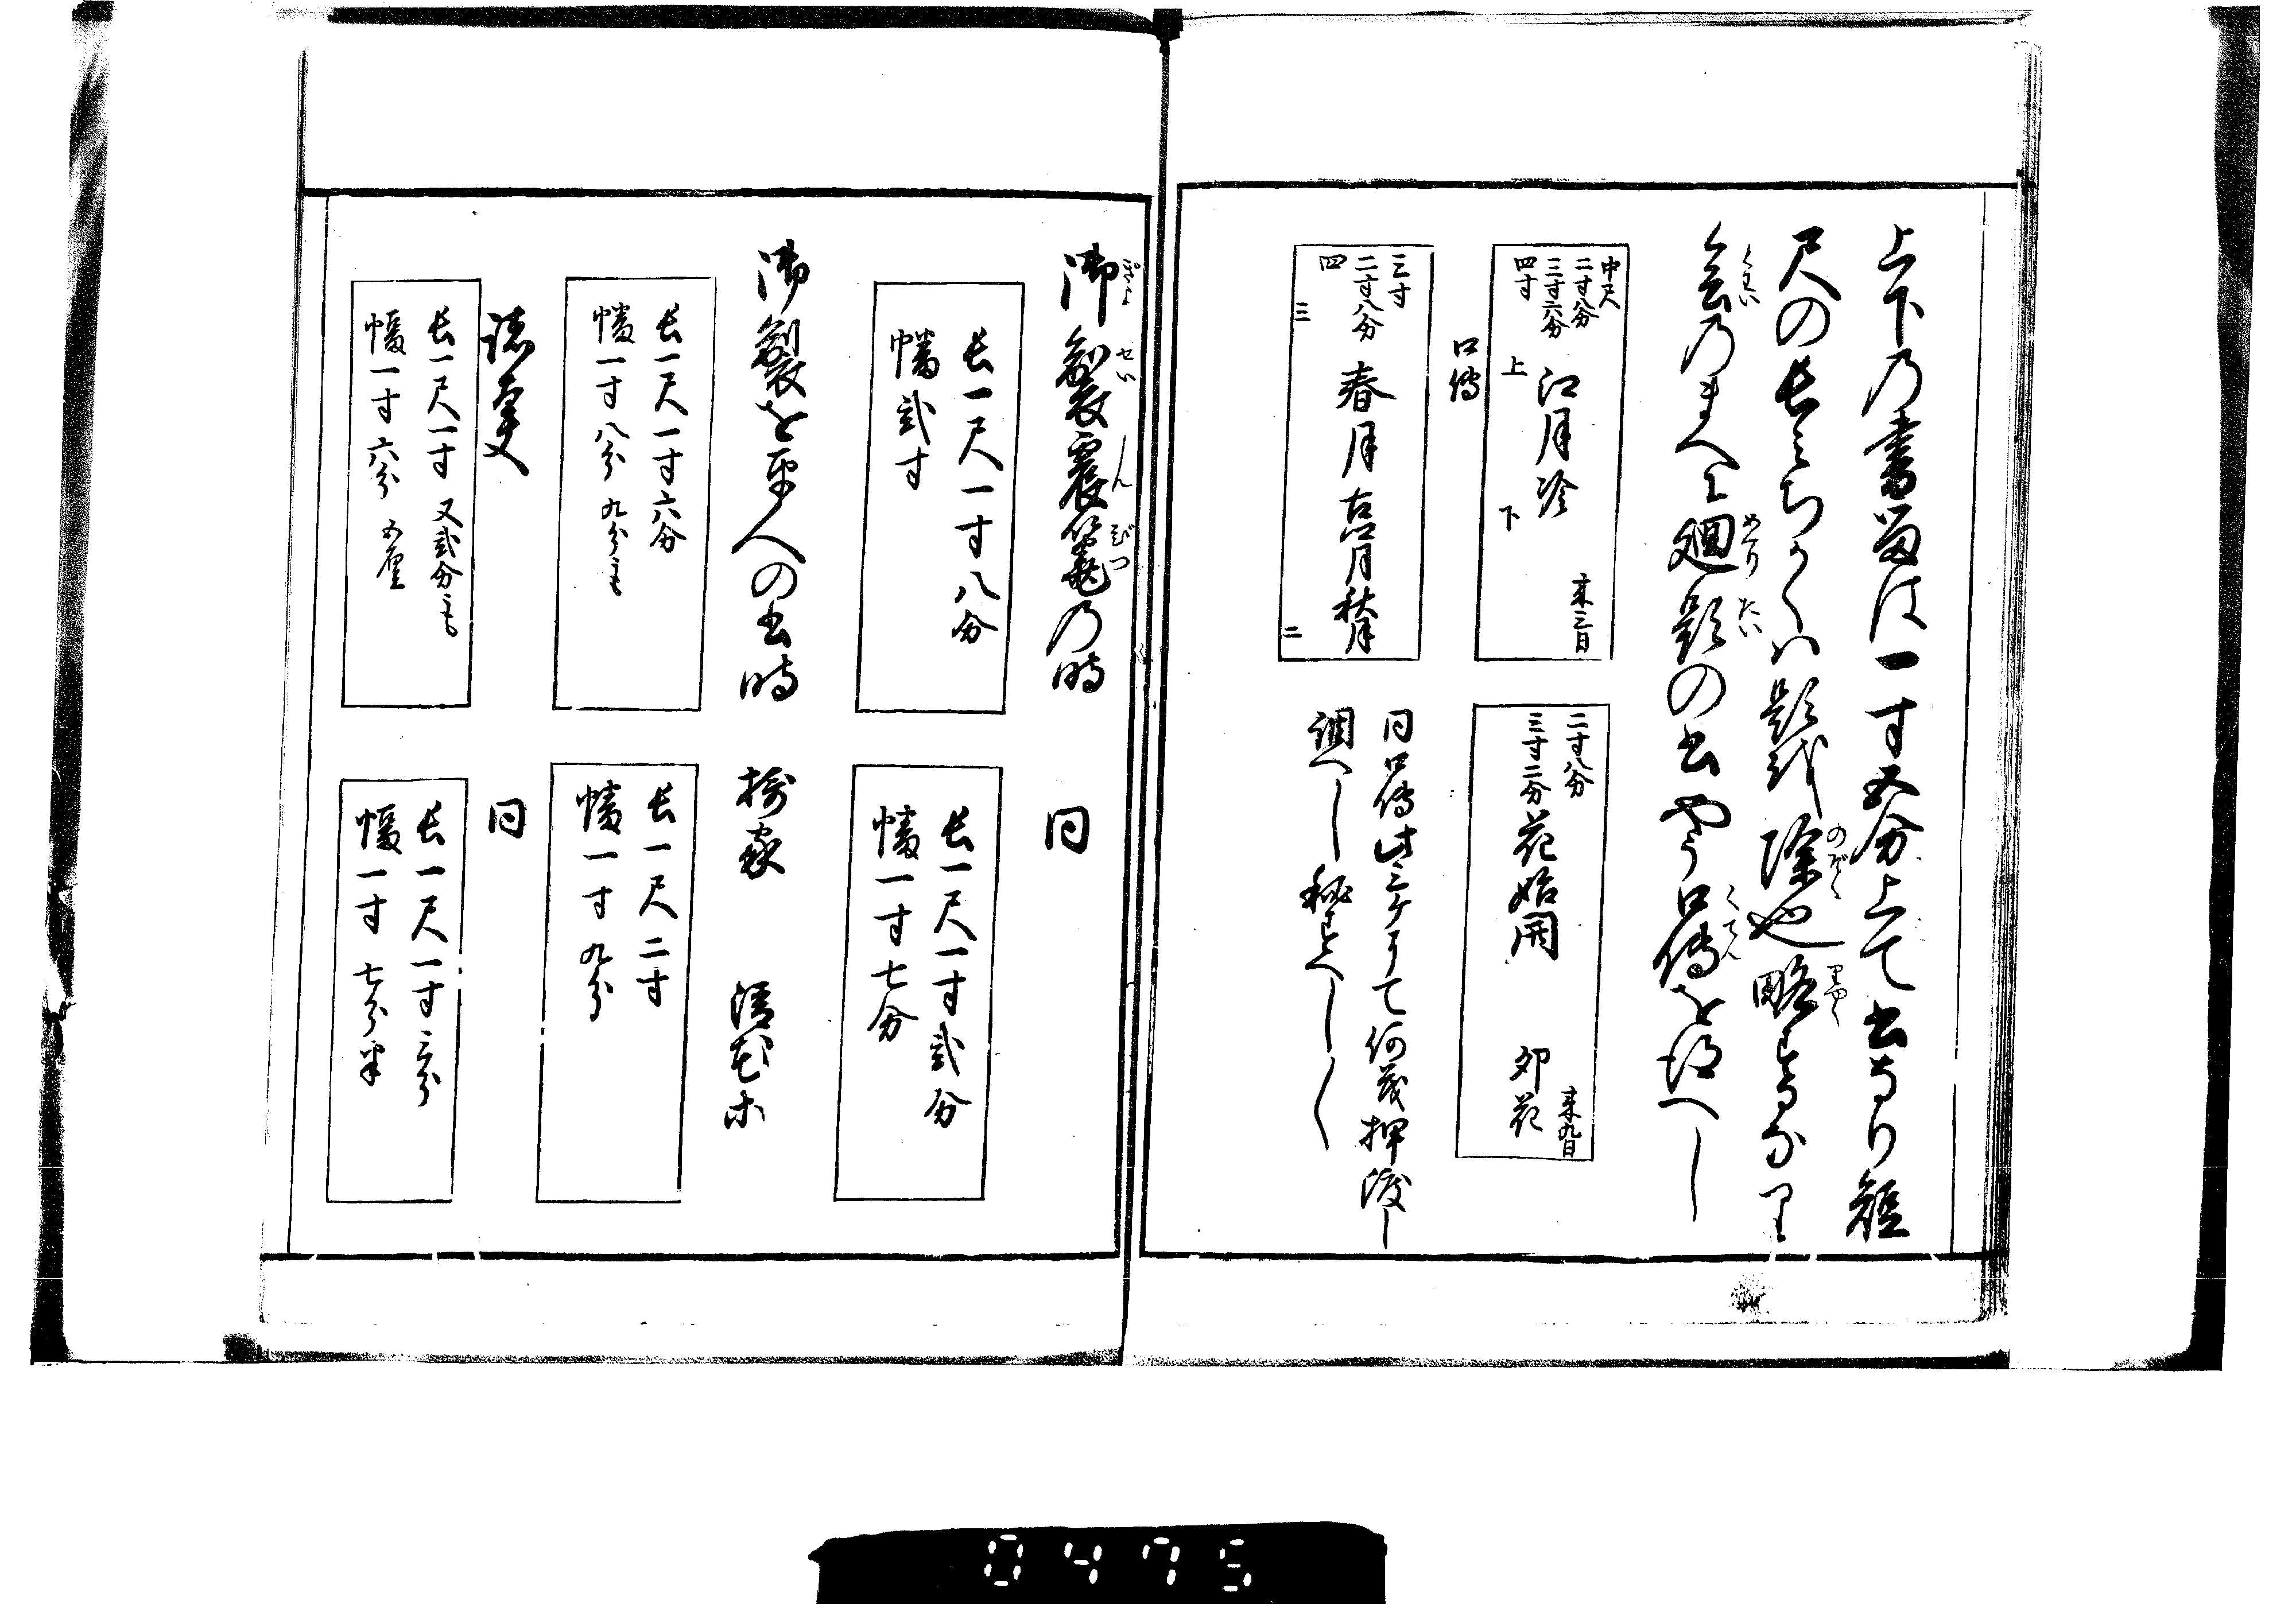 上下乃書留は一寸五分上て出るり短
尺の長みちかくハ題或除也略するなり
會乃まへに廻題の出やう口傳を得へし
中尺
二寸八分
三寸六分
四寸
江月冷
上
下
来三日
二寸八分
三寸二分
花始開
卯花
来九日
口傳
三寸
二寸八分
四
三
春月 古月 秋月
二
同口傳此三ケ
にて何茂押渡し
調へし秘すへし〱
御製宸筆乃時
同
長一尺一寸八分
幡弐寸
長一尺一寸弐分
幡一寸七分
御製を平人の出時
摂家
清花ホ
長一尺一寸六分
幡一寸八分 九分も
長一尺二寸
幡一寸九分
諸童
同
長一尺一寸 又弐分も
幅一寸六分 五厘
長一尺一寸三分
幅一寸七分半
0475